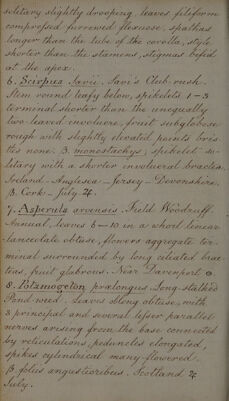 solitary slightly drooping, leaves filiform
compressed furrowed flexuose, spathas
longer than the tube of the corolla, style
shorter than the stamens, stigmas bifid
at the apex.
6. Scirpus Savii. Savi's Club-rush.
Stem round leafy below, spikelets 1-3
terminal shorter than the unequally
two-leaved involucre, fruit subglobose
rough with slightly elevated points bris
tles none. B. monostachys; spikelet so-
litary with a shorter involucral bractea.
Ireland - Anglesea - Jersey - Devonshire.
B. Cork - July ♃.
7. Asperula arvensis. Field Woodruff.
Annual, leaves 6-10 in a whorl linear-
lanceolate obtuse, flowers aggregate ter-
minal surrounded by long ciliated brac
teas, fruit glabrous. Near Davenport ⊙
8. Potamogeton prælongus. Long-stalked
Pond weed. Leaves oblong obtuse, with
3 principal and several lesser parallel
nerves arising from the base connected
by reticulations, peduncles elongated,
spikes cylindrical many-flowered.
B. foliis angustioribus. Scotland ♃
July.